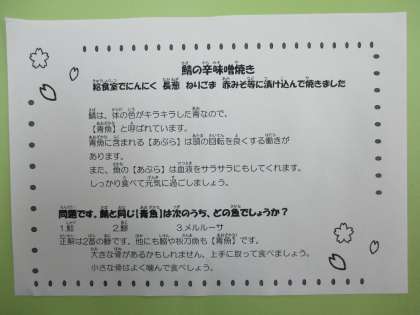 鯖の辛味噌焼き
給食室でにんにく 長葱 ねりごま 赤みそ等に漬け込んで焼きました
鯖は、体の色がキラキラした青なので、
【青魚】と呼ばれています。
青魚に含まれる【あぶら】は頭の回転を良くする働きが
あります。
また、魚の【あぶら】は血液をサラサラにもしてくれます。
しっかり食べて元気に過ごしましょう。
問題です。鯖と同じ【青魚】は次のうち、どの魚でしょうか？
1.鮭 2.鯵 3.メルルーサ
正解は2番の鯵です。他にも鰯や秋刀魚も【青魚】です。
大きな骨があるかもしれません。上手に取って食べましょう。
小さな骨はよく噛んで食べましょう。